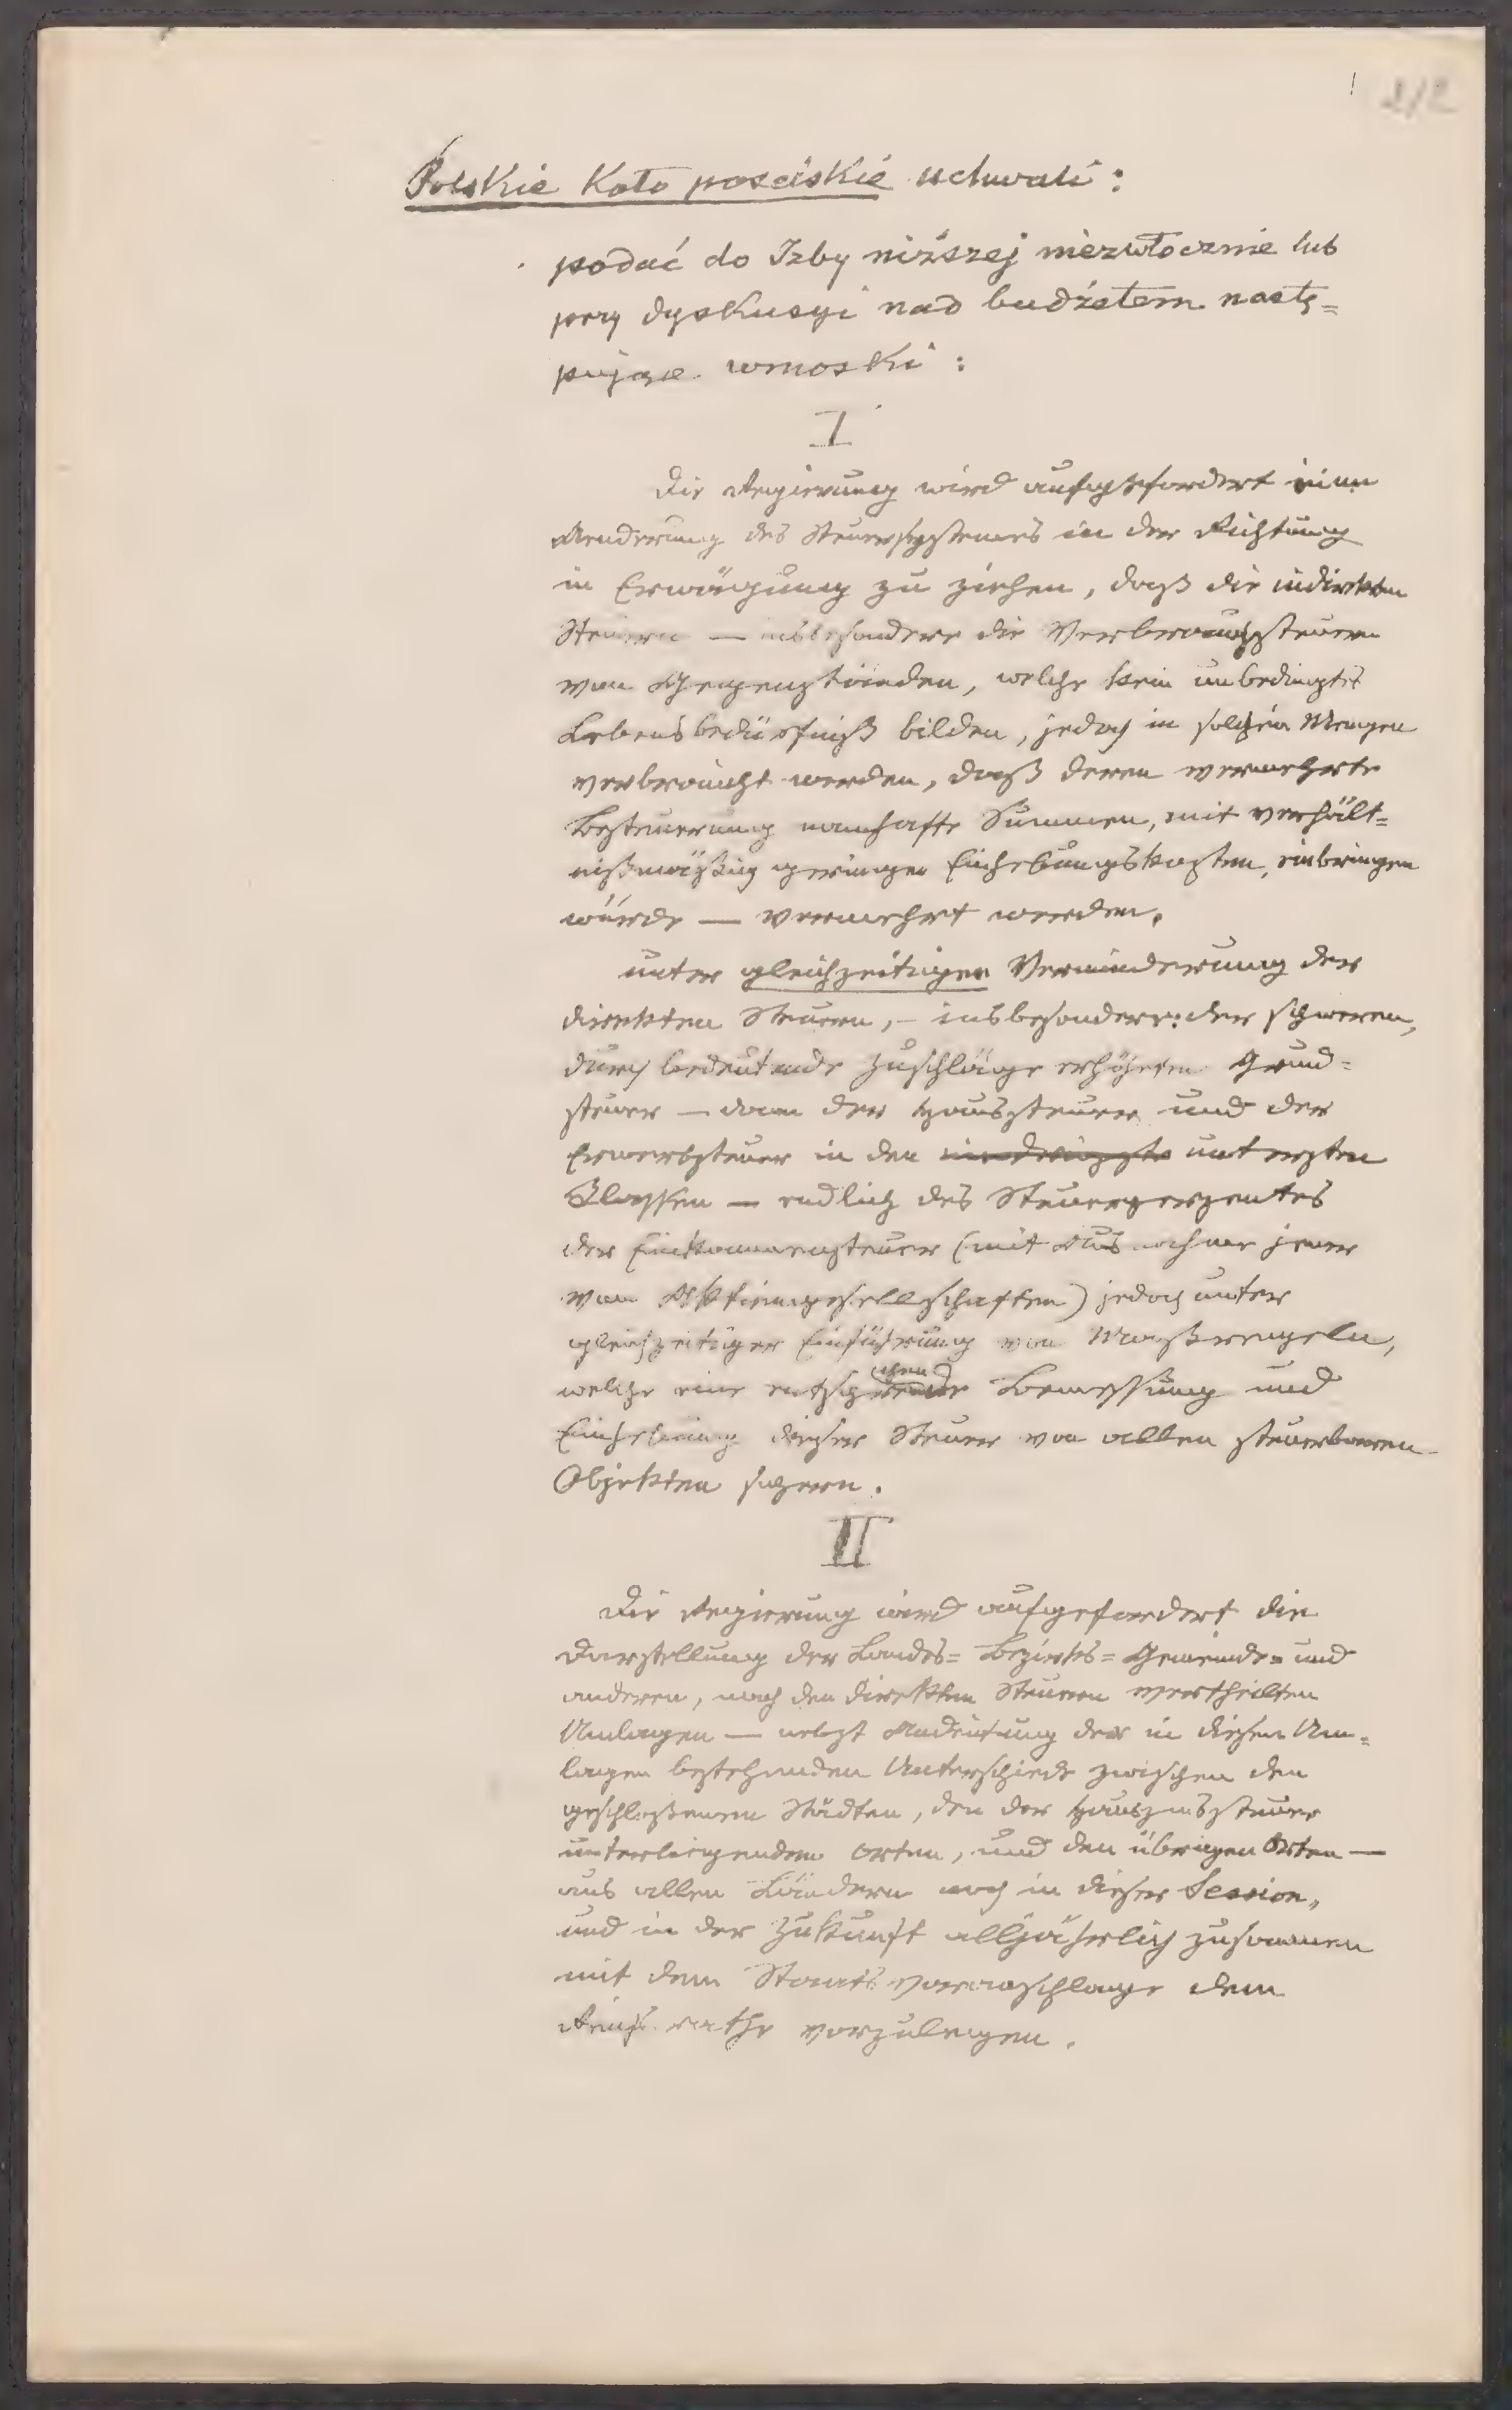 2/2
Polskie Koło poselskie uchwali:
podać do Izby niższej niezwłocznie lub
przy dyskusyi nad budżetem nastę=
pujące wnioski:
I
Die Regierung wird aufgefordert eine
Aenderung des Steuersystemes in der Richtung
in Erwägung zu ziehen, daß die indirekten
Steuern — insbesondere die Verbrauchssteuern
von Gegenständen, welche kein unbedingtes
Lebensbedürfniß bilden, jedoch in solchen Mengen
verbraucht werden, daß deren vermehrte
Besteuerung namhafte Summen, mit verhält=
nißmäßig geringen Einhebungskosten, einbringen
würde — vermehrt werden,
unter gleichzeitiger Verminderung der
direkten Steuern, – insbesondere: der schweren,
durch bedeutende Zuschläge erhöhten Grund=
steuer — dann der Haussteuer und der
Erwerbsteuer in den niedrigste untersten
Klassen — endlich des Steuerperzentes
der Einkommensteuer (mit Ausnahme jener
von Aktiengesellschaften) jedoch unter
gleichzeitiger Einführung von Maßregeln,
welche eine entsprechende Bemessung und
Einhebung dieser Steuer von allen steuerbaren
Objekten sichern.
II
Die Regierung wird aufgefordert die
Darstellung der Landes= Bezirks= Gemeinde= und
anderen, nach den direkten Steuern vertheilten
Umlagen — nebst Andeutung der in diesen Um=
lagen bestehenden Unterschiede zwischen den
geschloßenen Städten, den der Hauszinssteuer
unterliegenden Orten, und den übrigen Orten —
aus allen Ländern noch in dieser Session,
und in der Zukunft alljährlich zusammen
mit dem Staatsvoranschlage dem
Reichsrathe vorzulegen.